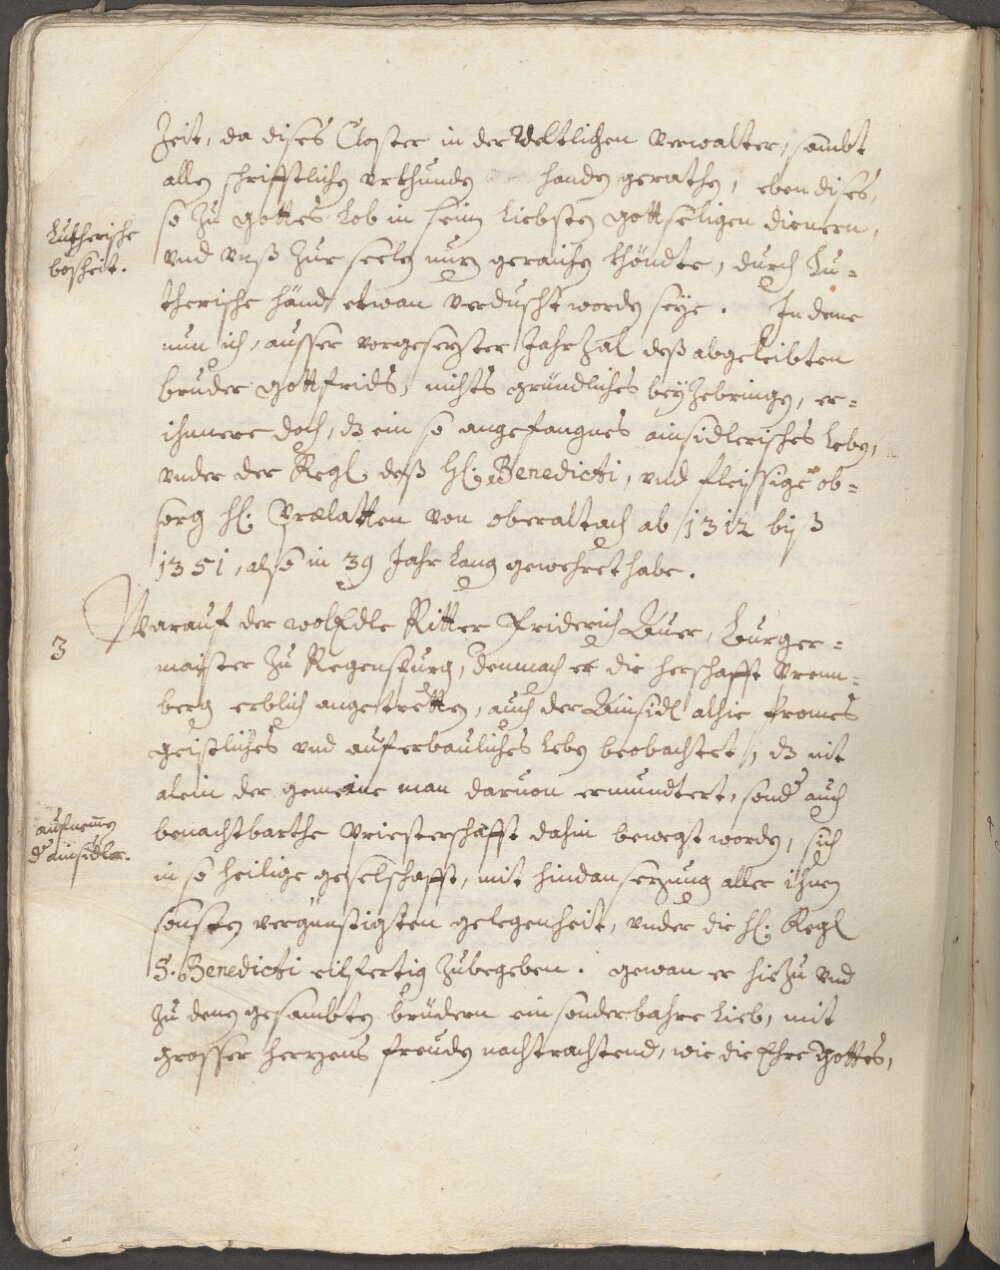 Zeit, da dises Closter in der Weltlichen verwalter, sambt
allen schrifftlichen vrkhunden handen gerathen, eben dises,
so zu gottes Lob in seinen Liebsten gottseeligen dienern,
Lutherische
boßheit.
vnd vnß zur seelen nuzen geraichen khöndte, durch Lu=
therische händt etwan verduscht worden seye. In deme
nun ich, ausser vorgesezster Jahr Zal deß abgeleibten
bruder gottfrids, nichts gründliches bey Zebringen, er=
ihnnere doch, dz ein so angefangnes ainsidlerisches Leben,
vnder der Regl deß hl: Benedicti, vnd fleyssige ob=
sorg hl: Prælatten von oberaltach ab 1312 biß
1351, also in 39 Jahr Lang gewehret habe.
3
Warauf der wolEdle Ritter Friderich Auer, Burger=
maister zu Regenspurg, demnach er die herschafft Prenn=
berg erblich angestretten, auch der Ainsidl alhie fromes
geistliches vnd auferbauliches Leben beobachtet, dz nit
alein der gemeine man daruon ermundtert, sond auch
aufnemen
d ainsidler.
benachtbarthe Priesterschafft dahin bewegt worden, sich
in so heilige geselschafft, mit hindansezung aller ihnen
sonsten vergünstigsten gelegenheit, vnder die hl: Regl
S. Benedicti eilfertig zubegeben. gewan er hiezu vnd
zu denen gesambten brüdern ein sonderbahre Lieb, mit
grosser herzens freuden nachtrachtend, wie die Ehre Gottes,